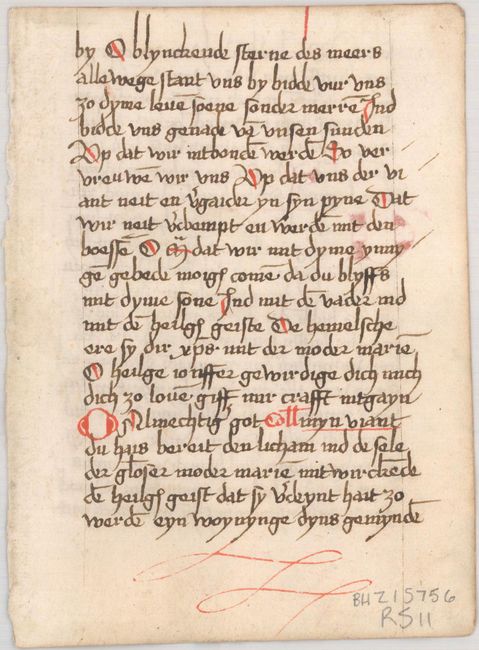 by O blynckende sterne des meers
alle wege stant vns by bidde vur vns
zo dyme leuē soene sonder merrē Ind
bidde vns genade vā vnsen sunden
Vp dat wir intbondē werdē Nv ver
vreuwe wir vns Vp dat vns der vi
ant neit en v'gaider yn syn pyne Dat
wir neit v'dempt en werdē mit den
boesse O dat wir mit dyme ynny
ge gebede moigē comē da du blyffs
mit dyme sone Ind mit dē vader ind
mit dē heilgē geiste De hemelsche
ere sy dir xp̄s mit der moder mariē
O heilge ionffer gewirdige dich mich
dich zo louē giff mir crafft intgayn
O Almechtig got Coll myn viant
du hais bereit den licham ind de sele
der gloser moder marie mit wirckēde
dē heilgē geist dat sy v'deynt hait zo
werdē eyn woynynge dyns gemyndē
BHZ15756
RS11